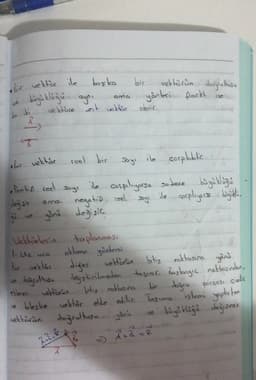 Bir vektör ile başka bir vektörün doğrultusu
ve büyüklüğü aynı ama yönleri farklı ise
bu iki vektöre zıt vektör denir.
Bir vektör reel bir sayı ile çarpılabilir.
Pozitif reel sayı ile çarpılıyorsa sadece büyüklüğü
değişir ama negatif reel sayı ile çarpılıyorsa
ve yönü değişir.
Vektörlerin toplanması
1. Uç uca ekleme yöntemi
Bir vektör diğer vektörün bitiş noktasına yönü
ve değiştirilmeden taşınır. Başlangıç noktasından,
vektörün bitiş noktasına bir doğru çizilir
ve bileşke vektör elde edilir. Taşınma işlemi yapılırken
vektörün doğrultusu, yönü ve büyüklüğü değişmez